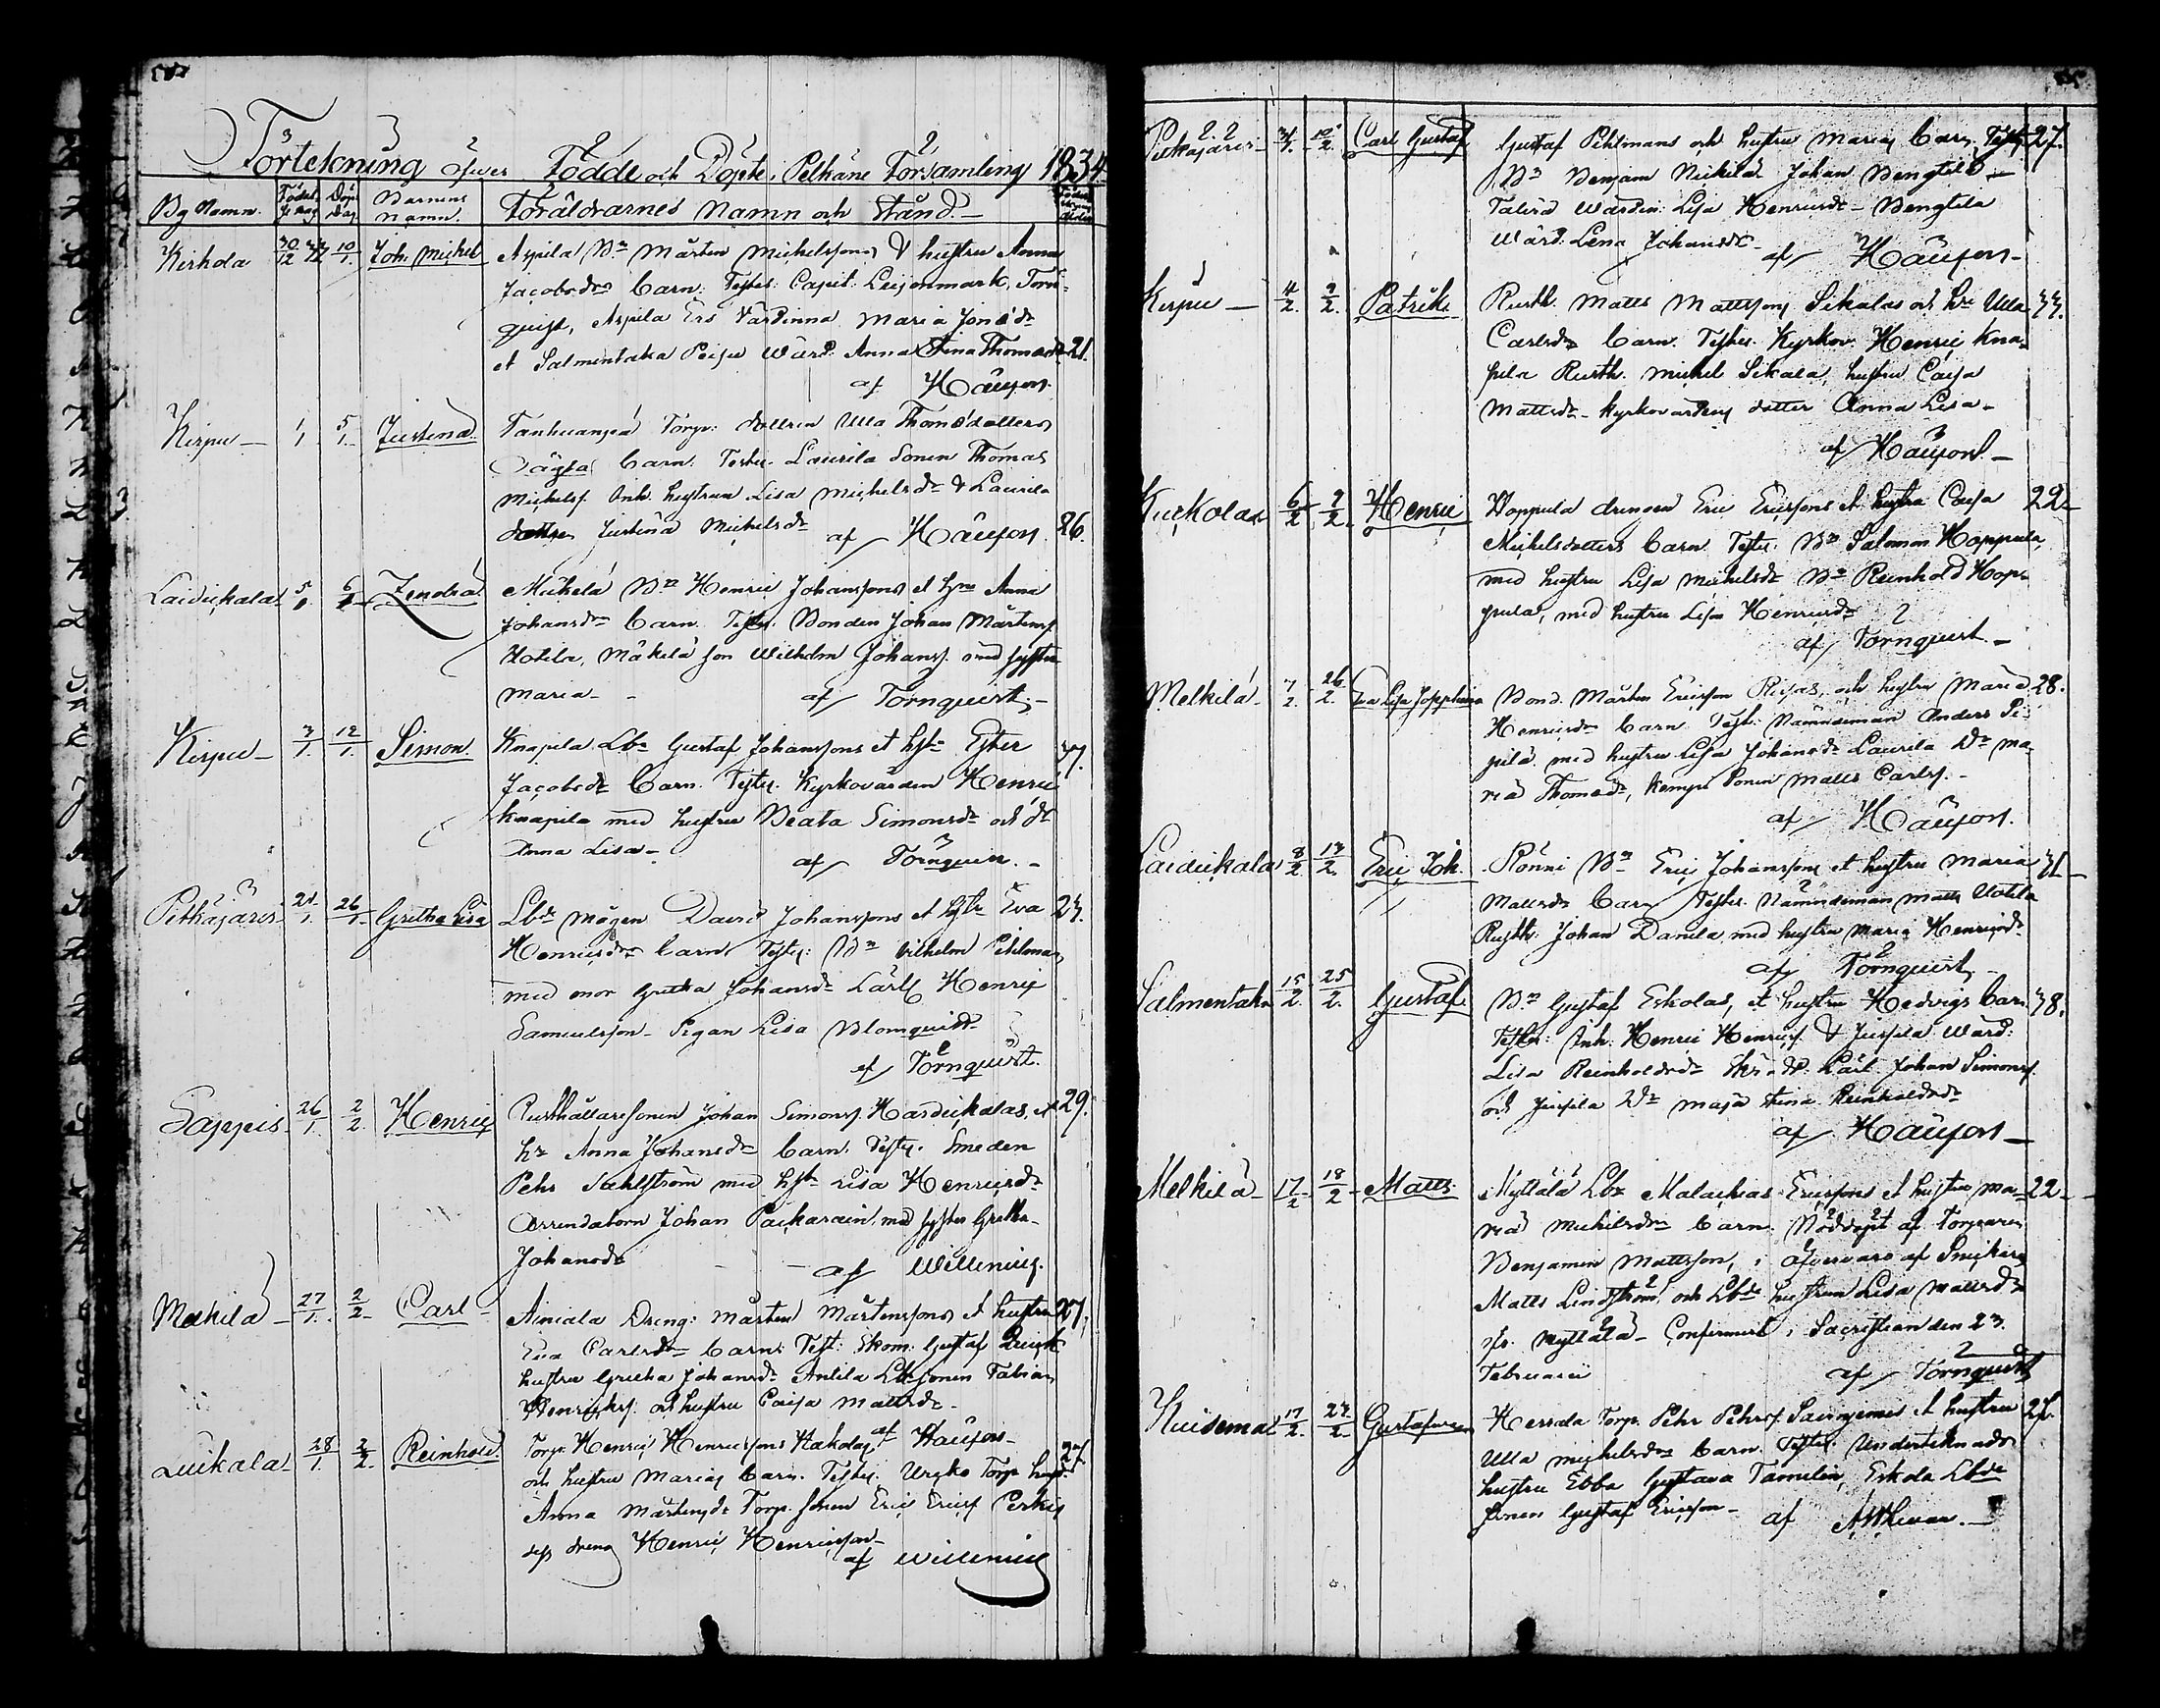 Förtekning öfwer Födde och Döpte i Pelkäne Församling 1834
By Namn. Födel. Döp. Dag Barnens Namn. Föräldrarnes Namn och Stånd.—
Kirkola 30/12 33 10/1. Joh. Michel Aspila Bn Mårten Michelssons & hustru Annas
Jacobsdrs barn. Testes: Capit: Leijonmark, Törn-
quist, Aspila Ers Värdinna Maria Jonsdr
et Salmentaka Värd. Anna Stina Thomasdr 21.
af Hausen.
Kirpu — 1/1 5/1. Justina. Torp: dottren Ulla Thomsdotters
barn. Testes. Laurila Sonen Thomas
Michelss. Inh. hustrun Lisa Michelsdr & Laurila
dottren Justina Michelsdr af Hausen. 26.
Laidickala 5/1. 6/1 Zenobia Mickelä Bn Henric Johanssons et hru Anna
Johansdrs barn. Testes. Bonden Johan Mårtenss.
Uotila, Mäkelä son Wilhelm Johanss. med syster
Maria — af Törnquist.—
Kirpu — 7/1. 12/1. Simon. Knapila Lbr Gustaf Johanssons et hstr Ester
Jacobsdr barn. Testes. Kyrkovärden Henric
Knapila med hustru Beata Simonsdr och dr
Anna Lisa — af Törnquist. —
Pitkäjärvi 21/1. 26/1. Gretha Lisa Lbde mågen David Johanssons et hstr Eva 23.
Henricsdrs barn, Testes: Bn Vilhelm Pihlman,
med mor Gretha Johansdr Henric
Samuelsson — Pigan Lisa Blomquist
af Törnquist.
Sappis 26/1. 2/2. Henric Rusthållaresonen Johan Simonss. Hardickalas, et 29.
hr Anna Johansdr barn. Testes. Smeden
Pehr Sahlström med hstr Lisa Henricsdr
Arrendatorn Johan med syster Gretha
Johansdr af Willenius.
Melkilä — 27/1. 2/2 — Carl — Ainiala Dreng: Mårten Mårtenssons et hustru 27.
Eva Carlsdrs barn. Test: Skom. Gustaf Quick
hustru Gretha Johansdr Anlila Lbsonen Fabian
Henrickss. och hustru Caisa Mattsdr —
af Hausen —
Luikala — 28/1. 2/2. Reinhold. Torp. Henric Henricssons
och hustru Marias barn. Testes. Torp. hust.
Anna Mårtensdr Torp. sonen Eric Ericss.
dreng Henric Henricsson —
af Willenius
Pitkäjärvi — 31/1. 10/2. Carl Gustaf Gustaf Pihlmans och hustru Marias barn, Testes 27.
Bn Benjam Mickelä Johan Bengtilä —
Wärdin: Lisa Henricsdr — Bengtila
Wärd: Lena Johansdr —
af Hausen —
Kirpu — 4/2. 9/2. Patrik. Rusth. Matts Mattssons Sikalas och hru Ulla 33.
Carlsdrs barn. Testes. Kyrkov. Henric Kna-
pila Rusth. Michel Sikala, hustru Caisa
Mattsdr — Kyrkovärdens dotter Anna Lisa —
af Hausen —
Kuckola 6/2 9/2 Henric Hoppula drengen Eric Ericssons et hustru Caisa 22 —
Michelsdotters barn. Testes. Bn Salomon Hoppula,
med hustru Lisa Michelsdr Bn Reinhold Hop-
pula, med hustru Lisa Henricsdr
af Törnquist. —
Melkilä — 7/2. 26/2. Eva Lisa Josephina Bond. Mårten Ericsson och hustru Maria 28.
Henricsdr barn. Test: Nämndeman Anders Pi-
pilä med hustru Lisa Johansdr Laurila Dr Ma-
ria Thomsdr, Kämpi Sonen Matts Carlss. —
af Hausen.
Laidickala 8/2 13/2. Eric Joh. Rönni Bn Eric Johanssons et hustru Maria 31 —
Mattsdr barn Testes. Nämndeman Matts Uotila
Rusth. Johan Danila, med hustru Maria Henricsdr
af Törnquist —
Salmentaka 15/2. 25/2. Gustaf Bn Gustaf Eskolas, et hustru Hedvigs barn 38.
Testes: Inh. Henric Henricss. & Juspila Wärd:
Lisa Reinholdsdr Johan Simonss.
och Juspila Dr Maja Stina Reinholdsdr
af Hausen —
Melkilä — 17/2 18/2 — Matts Myttälä Lbr Malachias Ericssons et hustru Ma- 22 —
ria Michelsdrs barn. Nöddöpt af Torparen
Benjamin Mattsson, i öfvervaro af Snickare
Matts Lindström och Lbde hustrun Lisa Mattsdr
fr. Myttälä — Confirmert i Sacristian den 23.
Februarii af Törnquist
Huidema 17/2. 23/2. Gustafva Torp. Pehr Pehrss. et hustru 27.
Ulla Michelsdrs barn. Testes. Undertecknads
hustru Ebba Gustava Tamelin, Eskola Lbde
sonen Gustaf Ericsson — af